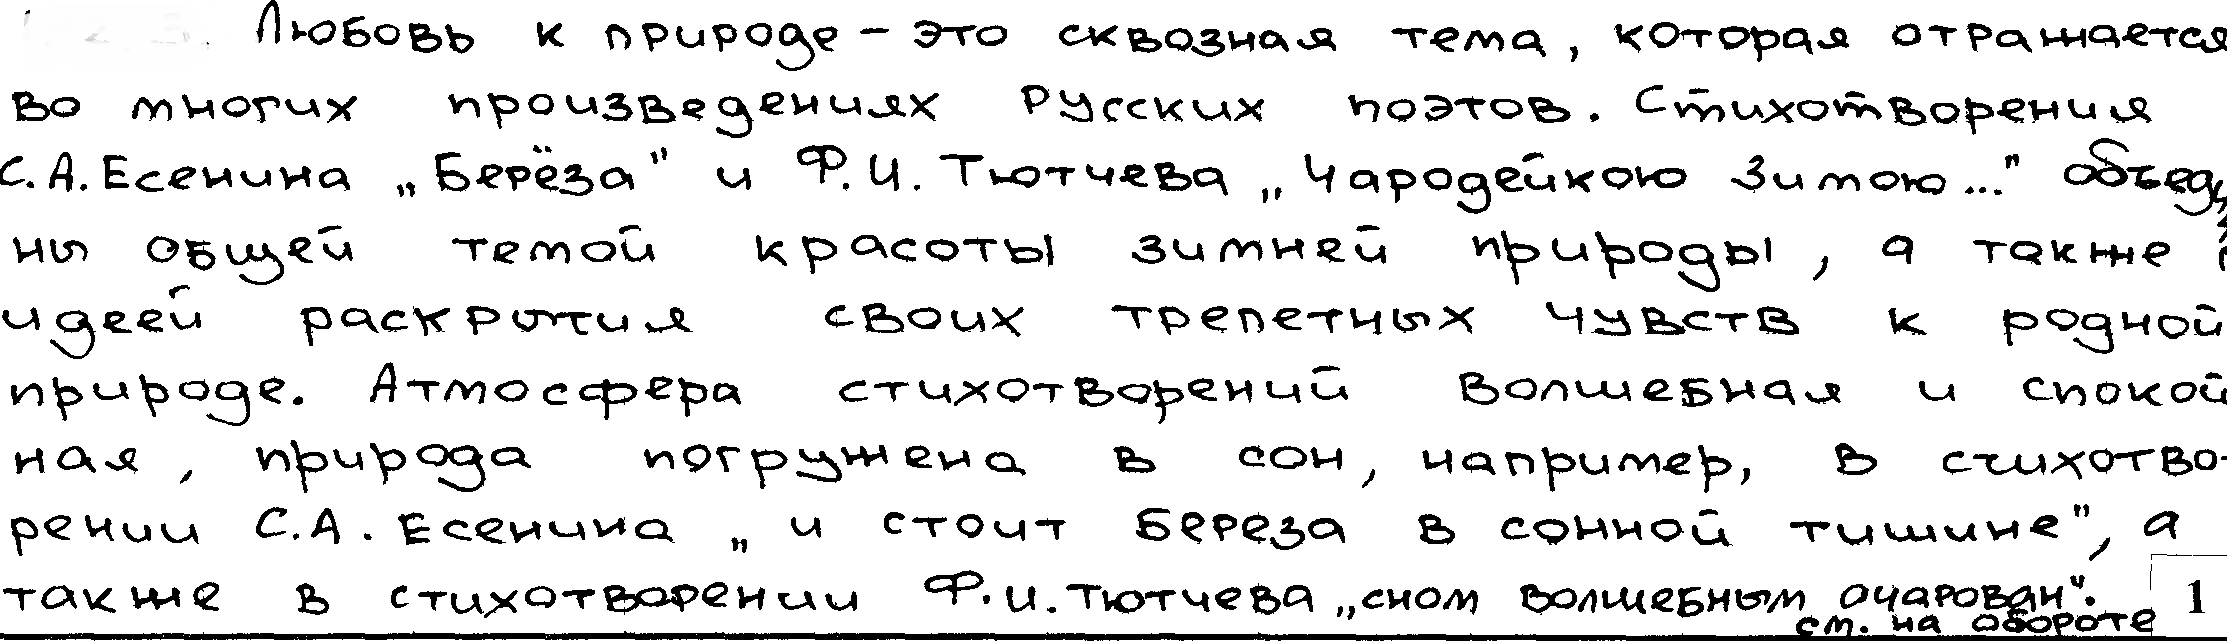 Любовь к природе – это сквозная тема, которая отражается
во многих произведениях русских поэтов. Стихотворения
С.А.Есенина „Берёза" и Ф.И. Тютчева „Чародейкою Зимою..." объеди
ны общей темой красоты зимней природы, а также
идеей раскрытия своих трепетных чувств к родной
природе. Атмосфера стихотворений волшебная и спокой
ная, природа погружена в сон, например, в стихотво-
рении С.А. Есенина „и стоит береза в сонной тишине", а
также в стихотворении Ф.И.Тютчева „сном волшебным очарован".
1
см. на обороте